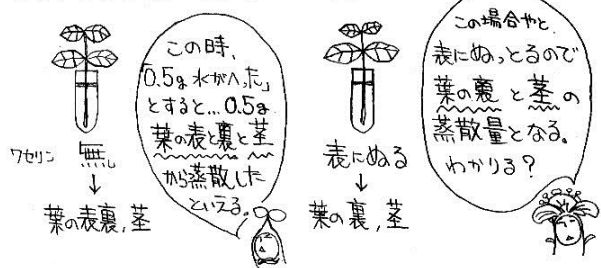 ワセリン 無し
↓
葉の表裏,茎
この時、
「0.5g 水がへった」
とすると…0.5g
葉の表と裏と茎
から蒸散した
といえる。
表にぬる
↓
葉の裏,茎
この場合やと、
表にぬっとるので
葉の裏と茎の
蒸散量となる。
わかりる?